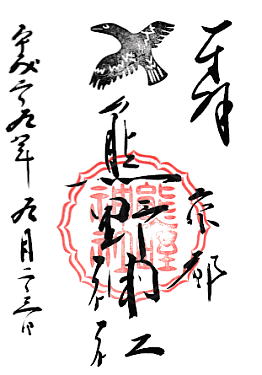 奉拝
京都
熊野神社
平成二十九年九月二十三日
熊野
神社